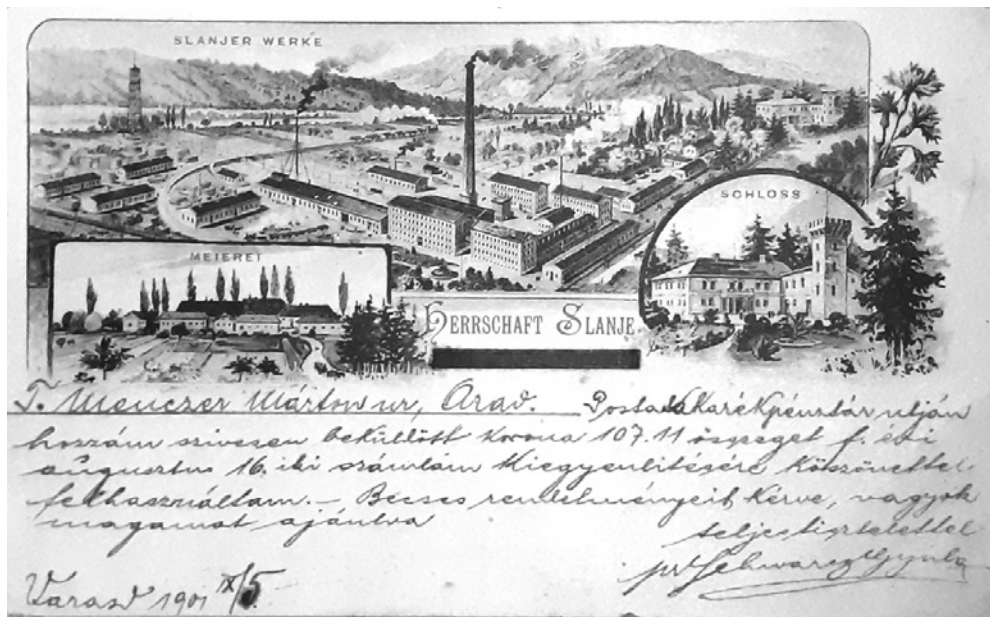 SLANJER WERKE
SCHLOSS
MEIEREI
HERRSCHAFT SLANJE
T. Menczer Márton ur, Arad. Postatakarékpénztár utján
hozzám szivesen beküldött korona 107.11 öszeget f. évi
augusztus 16. iki számlám kiegyenlitésére köszönettel
felhasználtam. – Becses rendelményeit kérve, vagyok
magamat ajánlva
teljes tisztelettel
pr Schwarz Gyula
Varasd 1901 IX/5